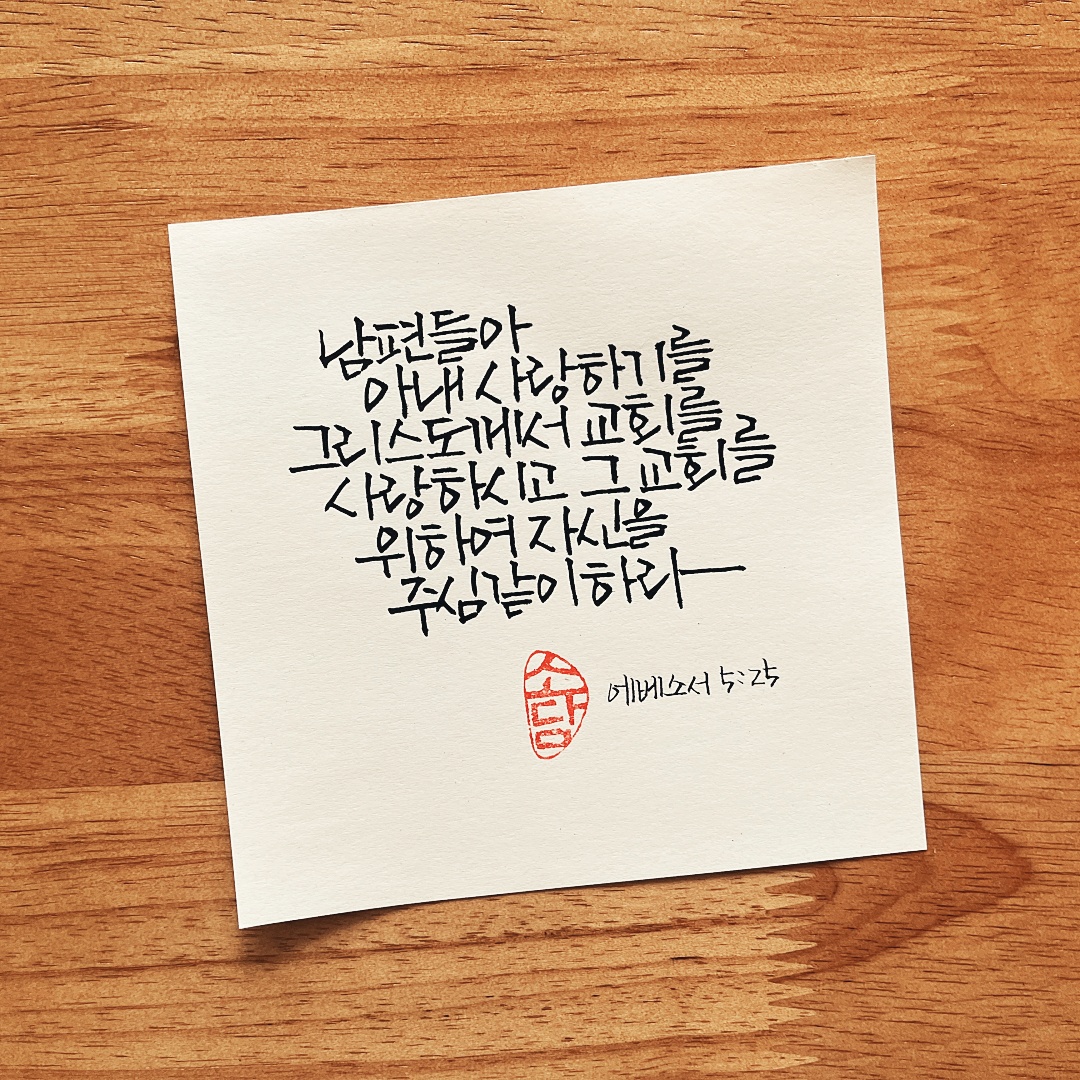 남편들아
아내 사랑하기를
그리스도께서 교회를
사랑하시고 그 교회를
위하여 자신을
주심같이하라
소담
에베소서 5:25